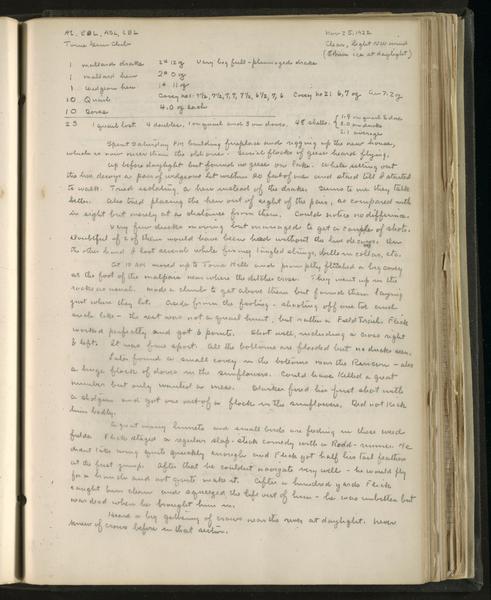 AL, EBL, ASL, LBL Nov 25, 1922
Tome Gun Club Clear, light NW wind
(Skim ice at daylight)
1 mallard drake 2# 12 oz Very big full-plumaged drake
1 mallard hen 2# 0 oz
1 widgeon hen 1# 11 oz
10 Quail Covey no 1: 7½, 7½, 7, 7, 7½, 6½, 7, 6 Covey no 2: 6, 7 oz Av 7.2 oz
10 Doves 4.0 oz each
23 1 quail lost. 4 doubles, 1 on quail and 3 on doves. 48 shells.
2.1 average
Spent Saturday PM building fireplace and rigging up the new house,
which is now nicer than the old one. Several flocks of geese heard flying.
Up before daylight but found no geese on lake. While setting out
the live decoys a pair of widgeons lit within 20 feet of me and stood till I started
to walk. Tried isolating a hen instead of the drake. Seems to me they talk
better. Also tried placing the hen out of sight of the pair, as compared with
in sight but merely at a distance from them. Could notice no difference.
Very few ducks moving but managed to get a couple of shots.
Doubtful if 2 of them would have been had without the live decoys. On
the other hand I lost several while fixing tangled strings, bells on collar, etc.
At 10 AM moved up to Tome Hill and promptly flushed a big covey
at the foot of the malpais near where the ditches cross. They went up in the
rocks as usual. Made a climb to get above them but found them laying
just where they lit. Aside from the footing - shooting off one toe and
such like - the rest was not a quail hunt, but rather a Field Trial. Flick
worked perfectly and got 6 points. Shot well, including a cross right
& left. It was fine sport. All the bottoms are flooded but no ducks seen.
Later found a small covey in the bottoms near the Rincon - also
a huge flock of doves in the sunflowers. Could have killed a great
number but only wanted a mess. Starker fired his first shot with
a shotgun and got one out of a flock in the sunflowers. Did not kick
him badly.
A great many linnets and small birds are feeding in these weed
fields. Flick staged a regular slap-stick comedy with a Road-runner. He
didnt take wing quite quickly enough and Flick got half his tail feathers
at the first jump. After that he couldnt navigate very well - he would fly
for a bunch and not quite make it. After a hundred yards Flick
caught him clean and squeezed the life out of him - he was unbitten but
was dead when he brought him in.
Heard a big gathering of crows near the river at daylight. Never
knew of crows before in that section.